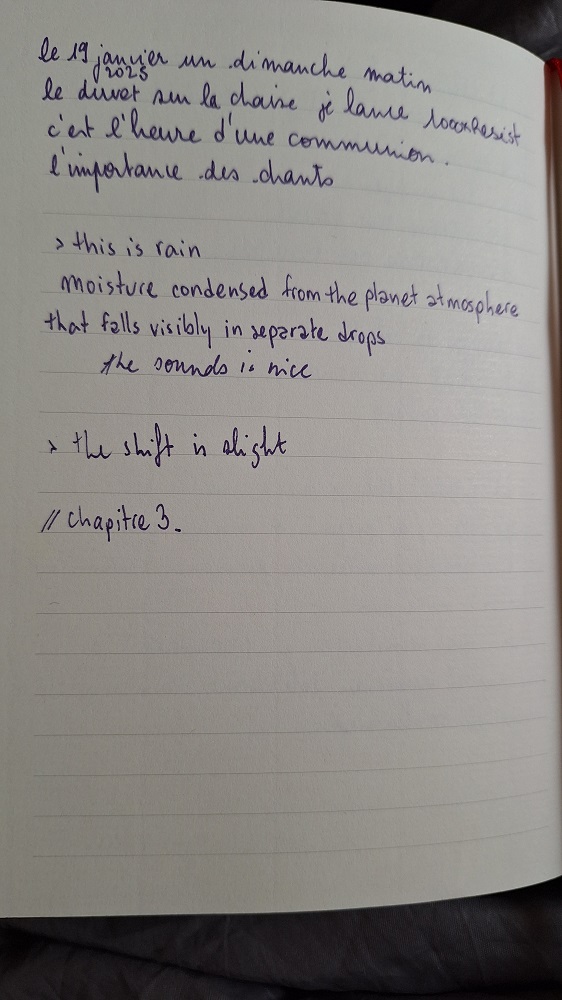 le 19 janvier un dimanche matin
2025
le duvet sur la chaise je lance 1000xResist
c'est l'heure d'une communion.
l'importance des chants
> this is rain
moisture condensed from the planet atmosphere
that falls visibly in separate drops
the sounds is nice
> the shift is slight
// chapitre 3.